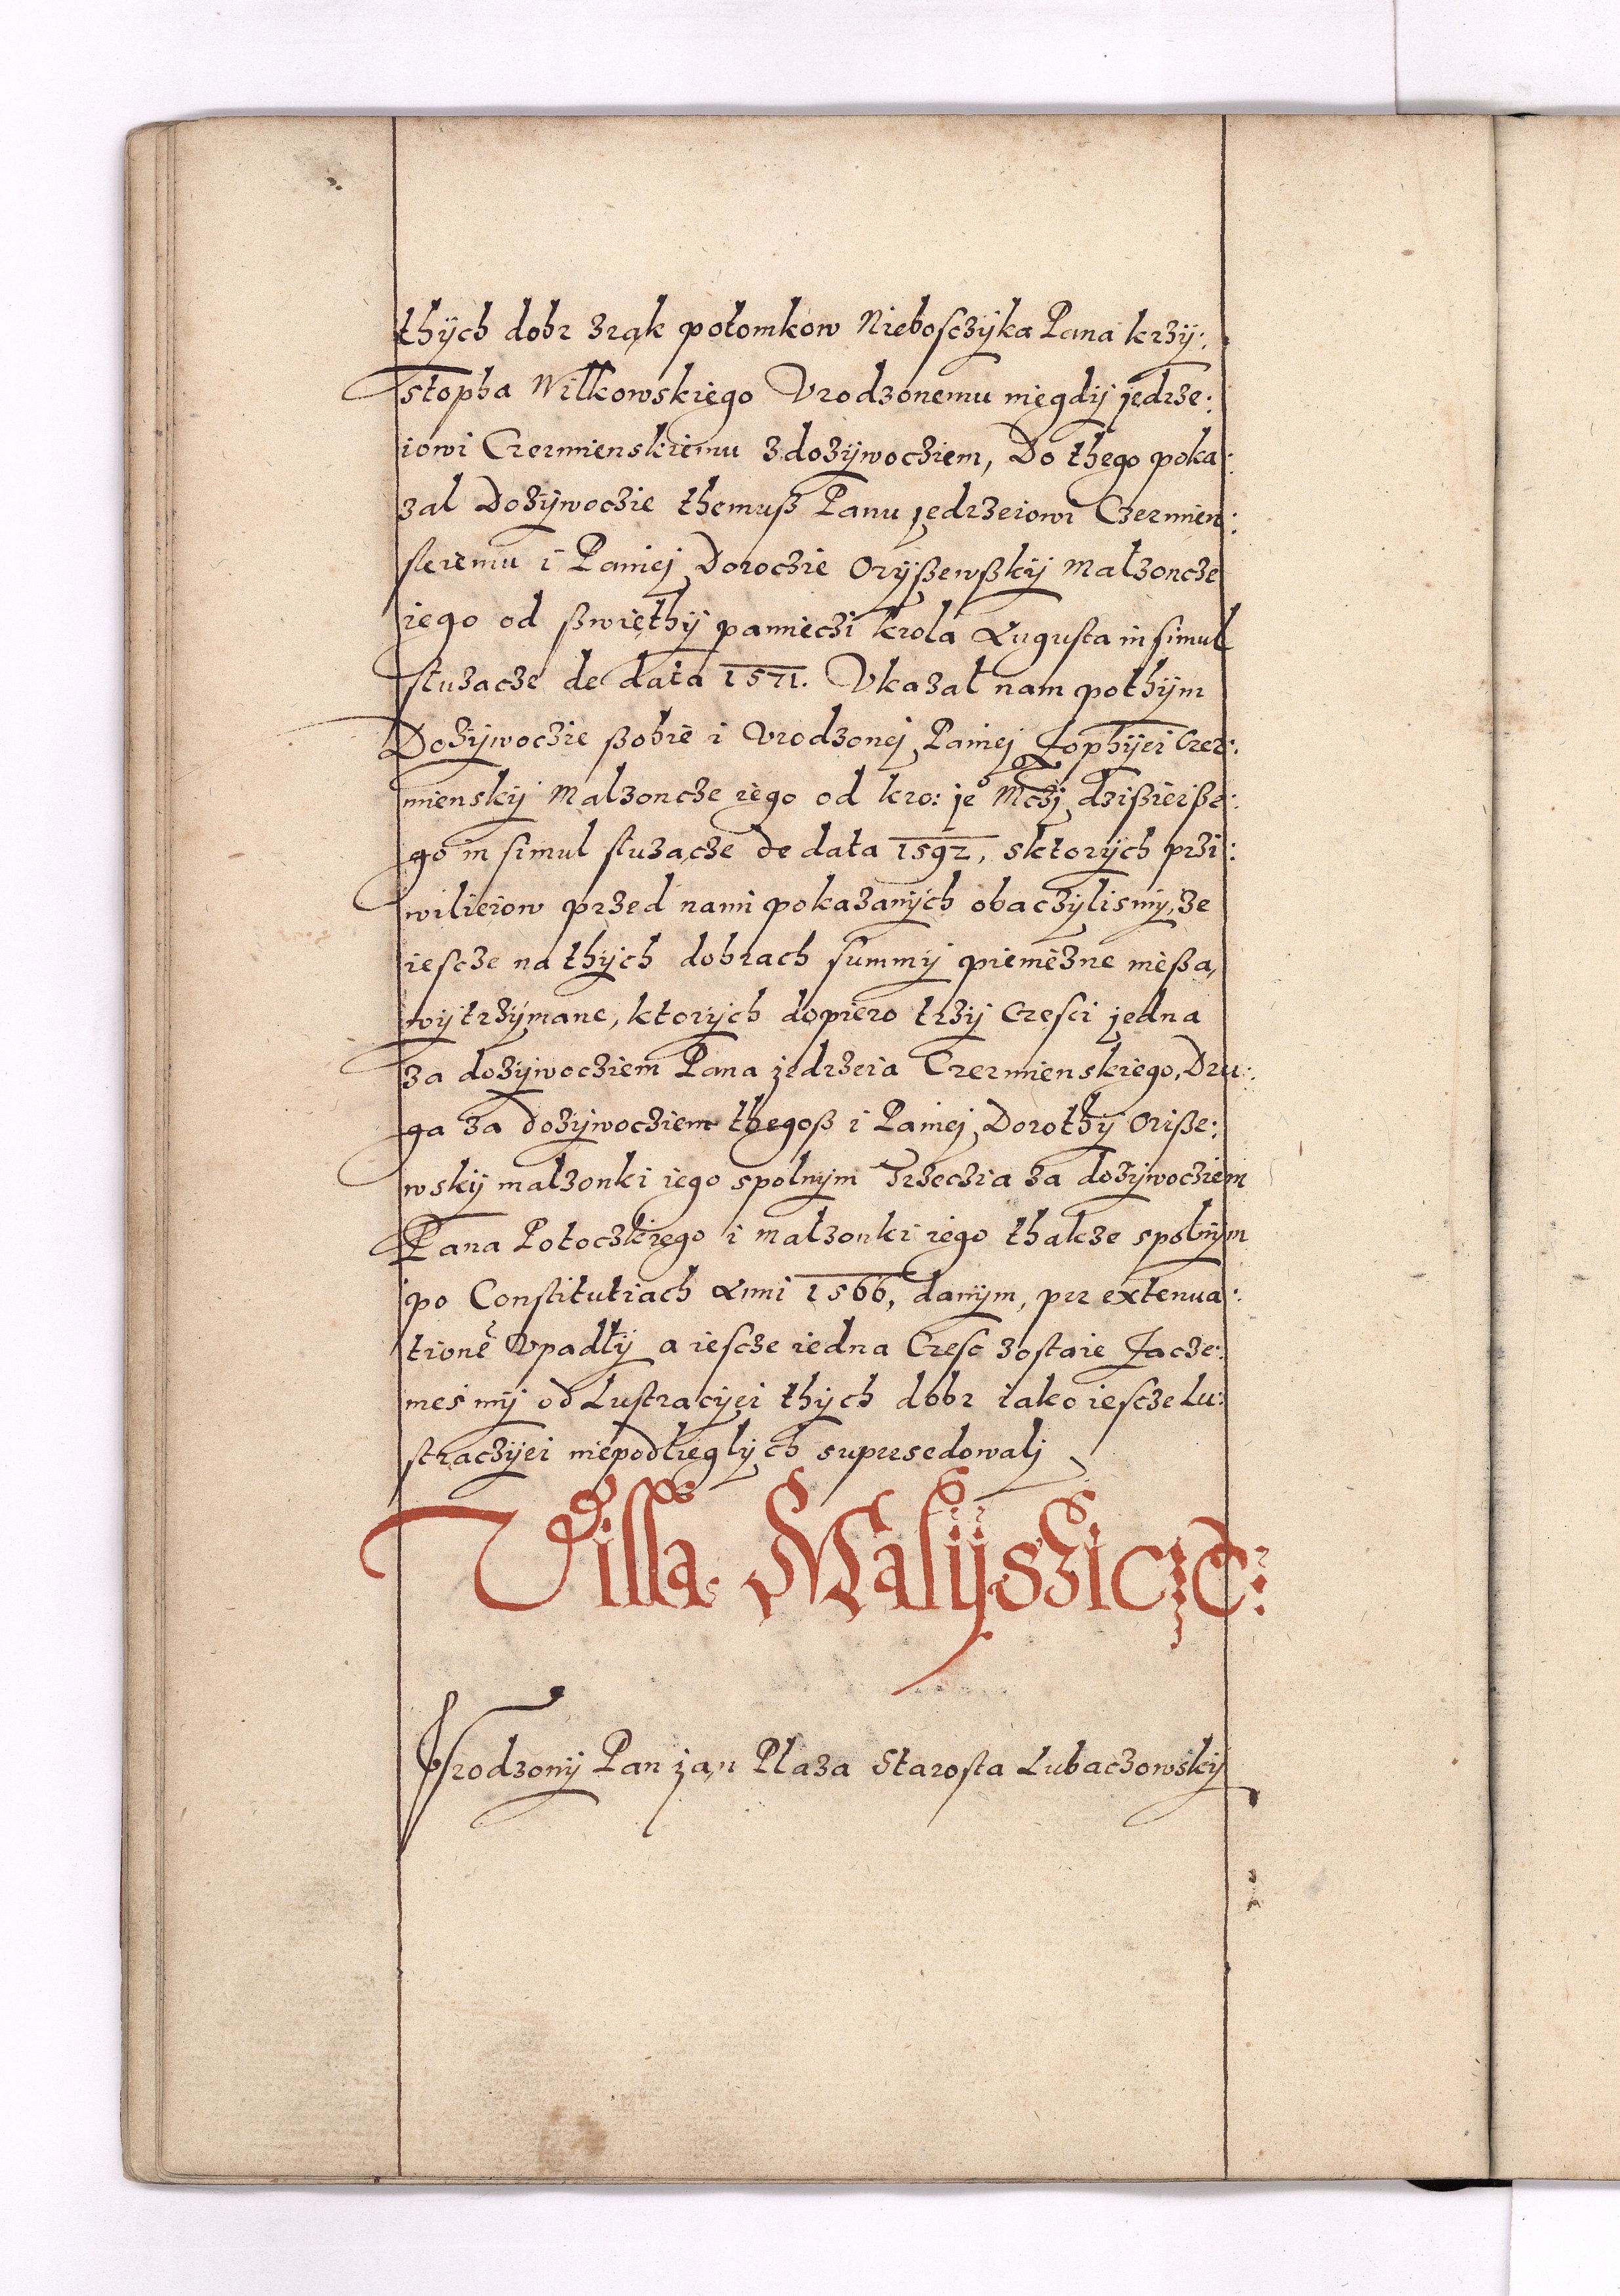 thÿch dobr zrąk potomkow Nieboſczÿka Pana krzÿ:
stopha Wilkowskiego Vrodzonemu niegdÿ jedrze:
iowi Czermienskiemu zdozÿwocziem, Do thego poka:
zal Dozÿwoczie themuß Panu jedrzeiowi Czermien:
skiemu i Paniej Doroczie Orÿßewßkÿ Malzoncze
iego od ßwięthÿ pamieczi krola Augusta in simul
sluzacze de data 1571. Vkazał nam pothÿm
Dozÿwoczie ßobie i Vrodzonej Paniej Zophÿei Czer:
mienskÿ Malzoncze iego od kro: je⁰ Mczj dzißieiße:
go in simul sluzącze de data 1592, sktorÿch pri:
wilieiow przed nami pokazanÿch obaczÿlismÿ, ze
iescze na thÿch dobrach summÿ pieniezne nießa,
wÿtrzÿmane, ktorÿch dopiero trzÿ Czesci jedna
za dozÿwocziem Pana jedrzeia Czermienskiego, Dru:
ga za dozÿwocziem thegoß i Paniej Dorothÿ Oriße:
wskÿ malzonki iego spolnÿm Trzeczia za dozÿwocziem
Pana Potoczkiego i malzonki iego thakze spolnÿm
po Constitutiach Anni 1566, danÿm, per extenua:
tionē Vpadłÿ a iescze iedna Czesc zostaie Zacze:
mes mÿ od Lustracÿei thÿch dobr iako iescze Lu:
straczÿei niepodlieglÿch supersedowalj
Villa. Malÿsziczę:
Vrodzonÿ Pan jan Plaza Starosta Lubaczowskÿ